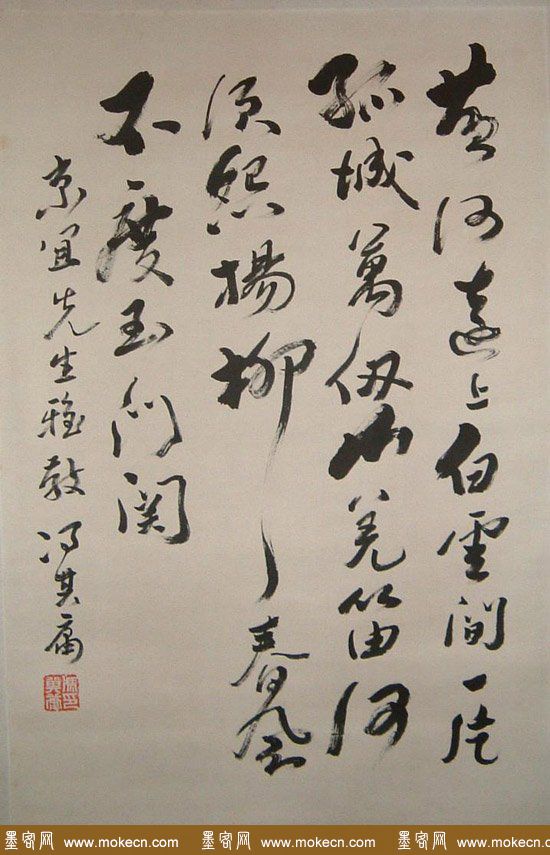 黄河遠上白雲間一片
孤城萬仞山羌笛何
須怨揚柳春風
不度玉門関
京宜先生雅教 馮其庸
墨客网 www.mokecn.com 墨客网 www.mokecn.com 墨客网 www.mokecn.com